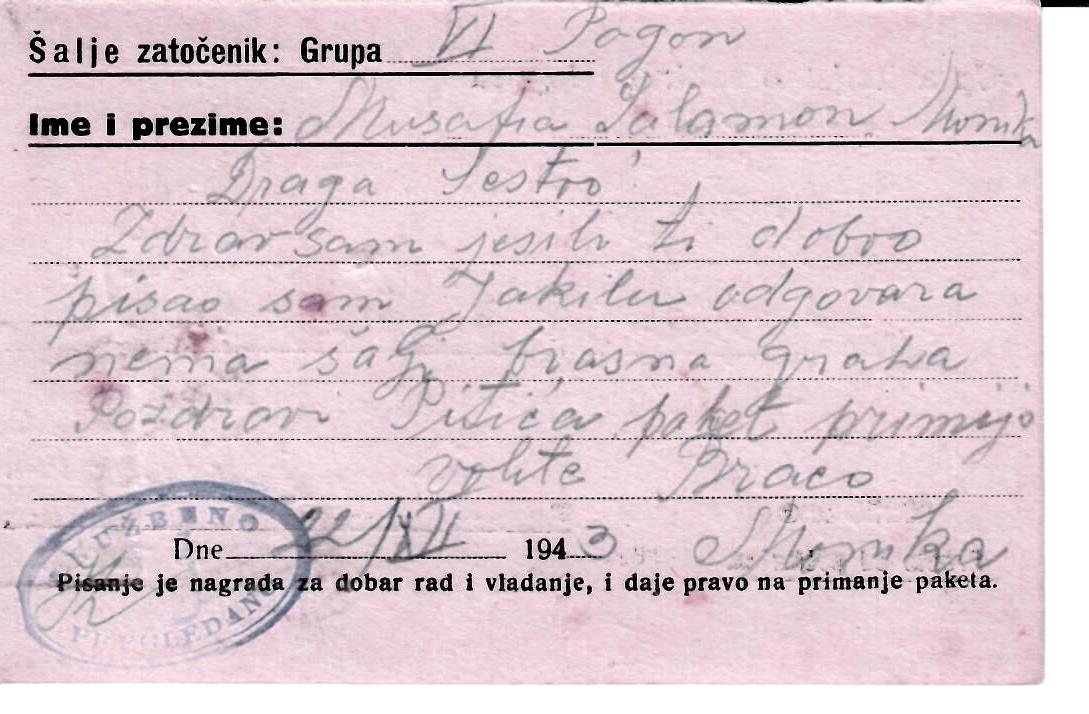 Šalje zatočenik: Grupa VI Pogon
Ime i prezime: Musafia Salamon Monika
Draga Sestro!
Zdrav sam jesili ti dobro
pisao sam Jakilu odgovara
nema šalji brasna graha
Pozdravi Pitića paket primijo
volite Braco
Dne 22/XII 1943 Monika
Pisanje je nagrada za dobar rad i vladanje, i daje pravo na primanje paketa.
SLUŽBENO
PREGLEDANO